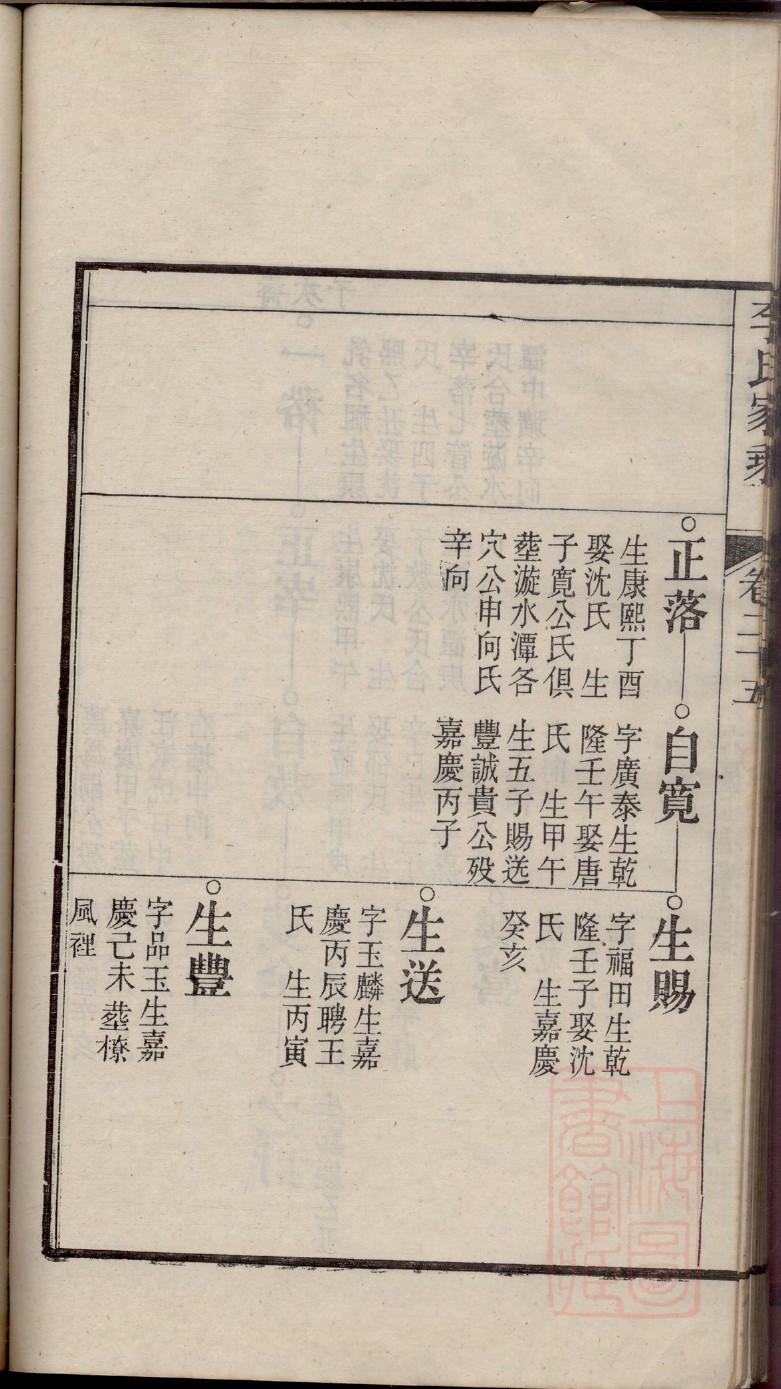 李氏家乘
卷二十五
正落
生康熙丁酉
娶沈氏 生
子寬公氏俱
塟漩水潭各
穴公申向氏
辛向
自寬
字廣泰生乾
隆壬午娶唐
氏 生甲午
生五子賜送
豐誠貴公殁
嘉慶丙子
生賜
字福田生乾
隆壬子娶沈
氏 生嘉慶
癸亥
生送
字玉麟生嘉
慶丙辰聘王
氏 生丙寅
生豐
字品玉生嘉
慶己未塟橑
風裡
上海圖
書館藏